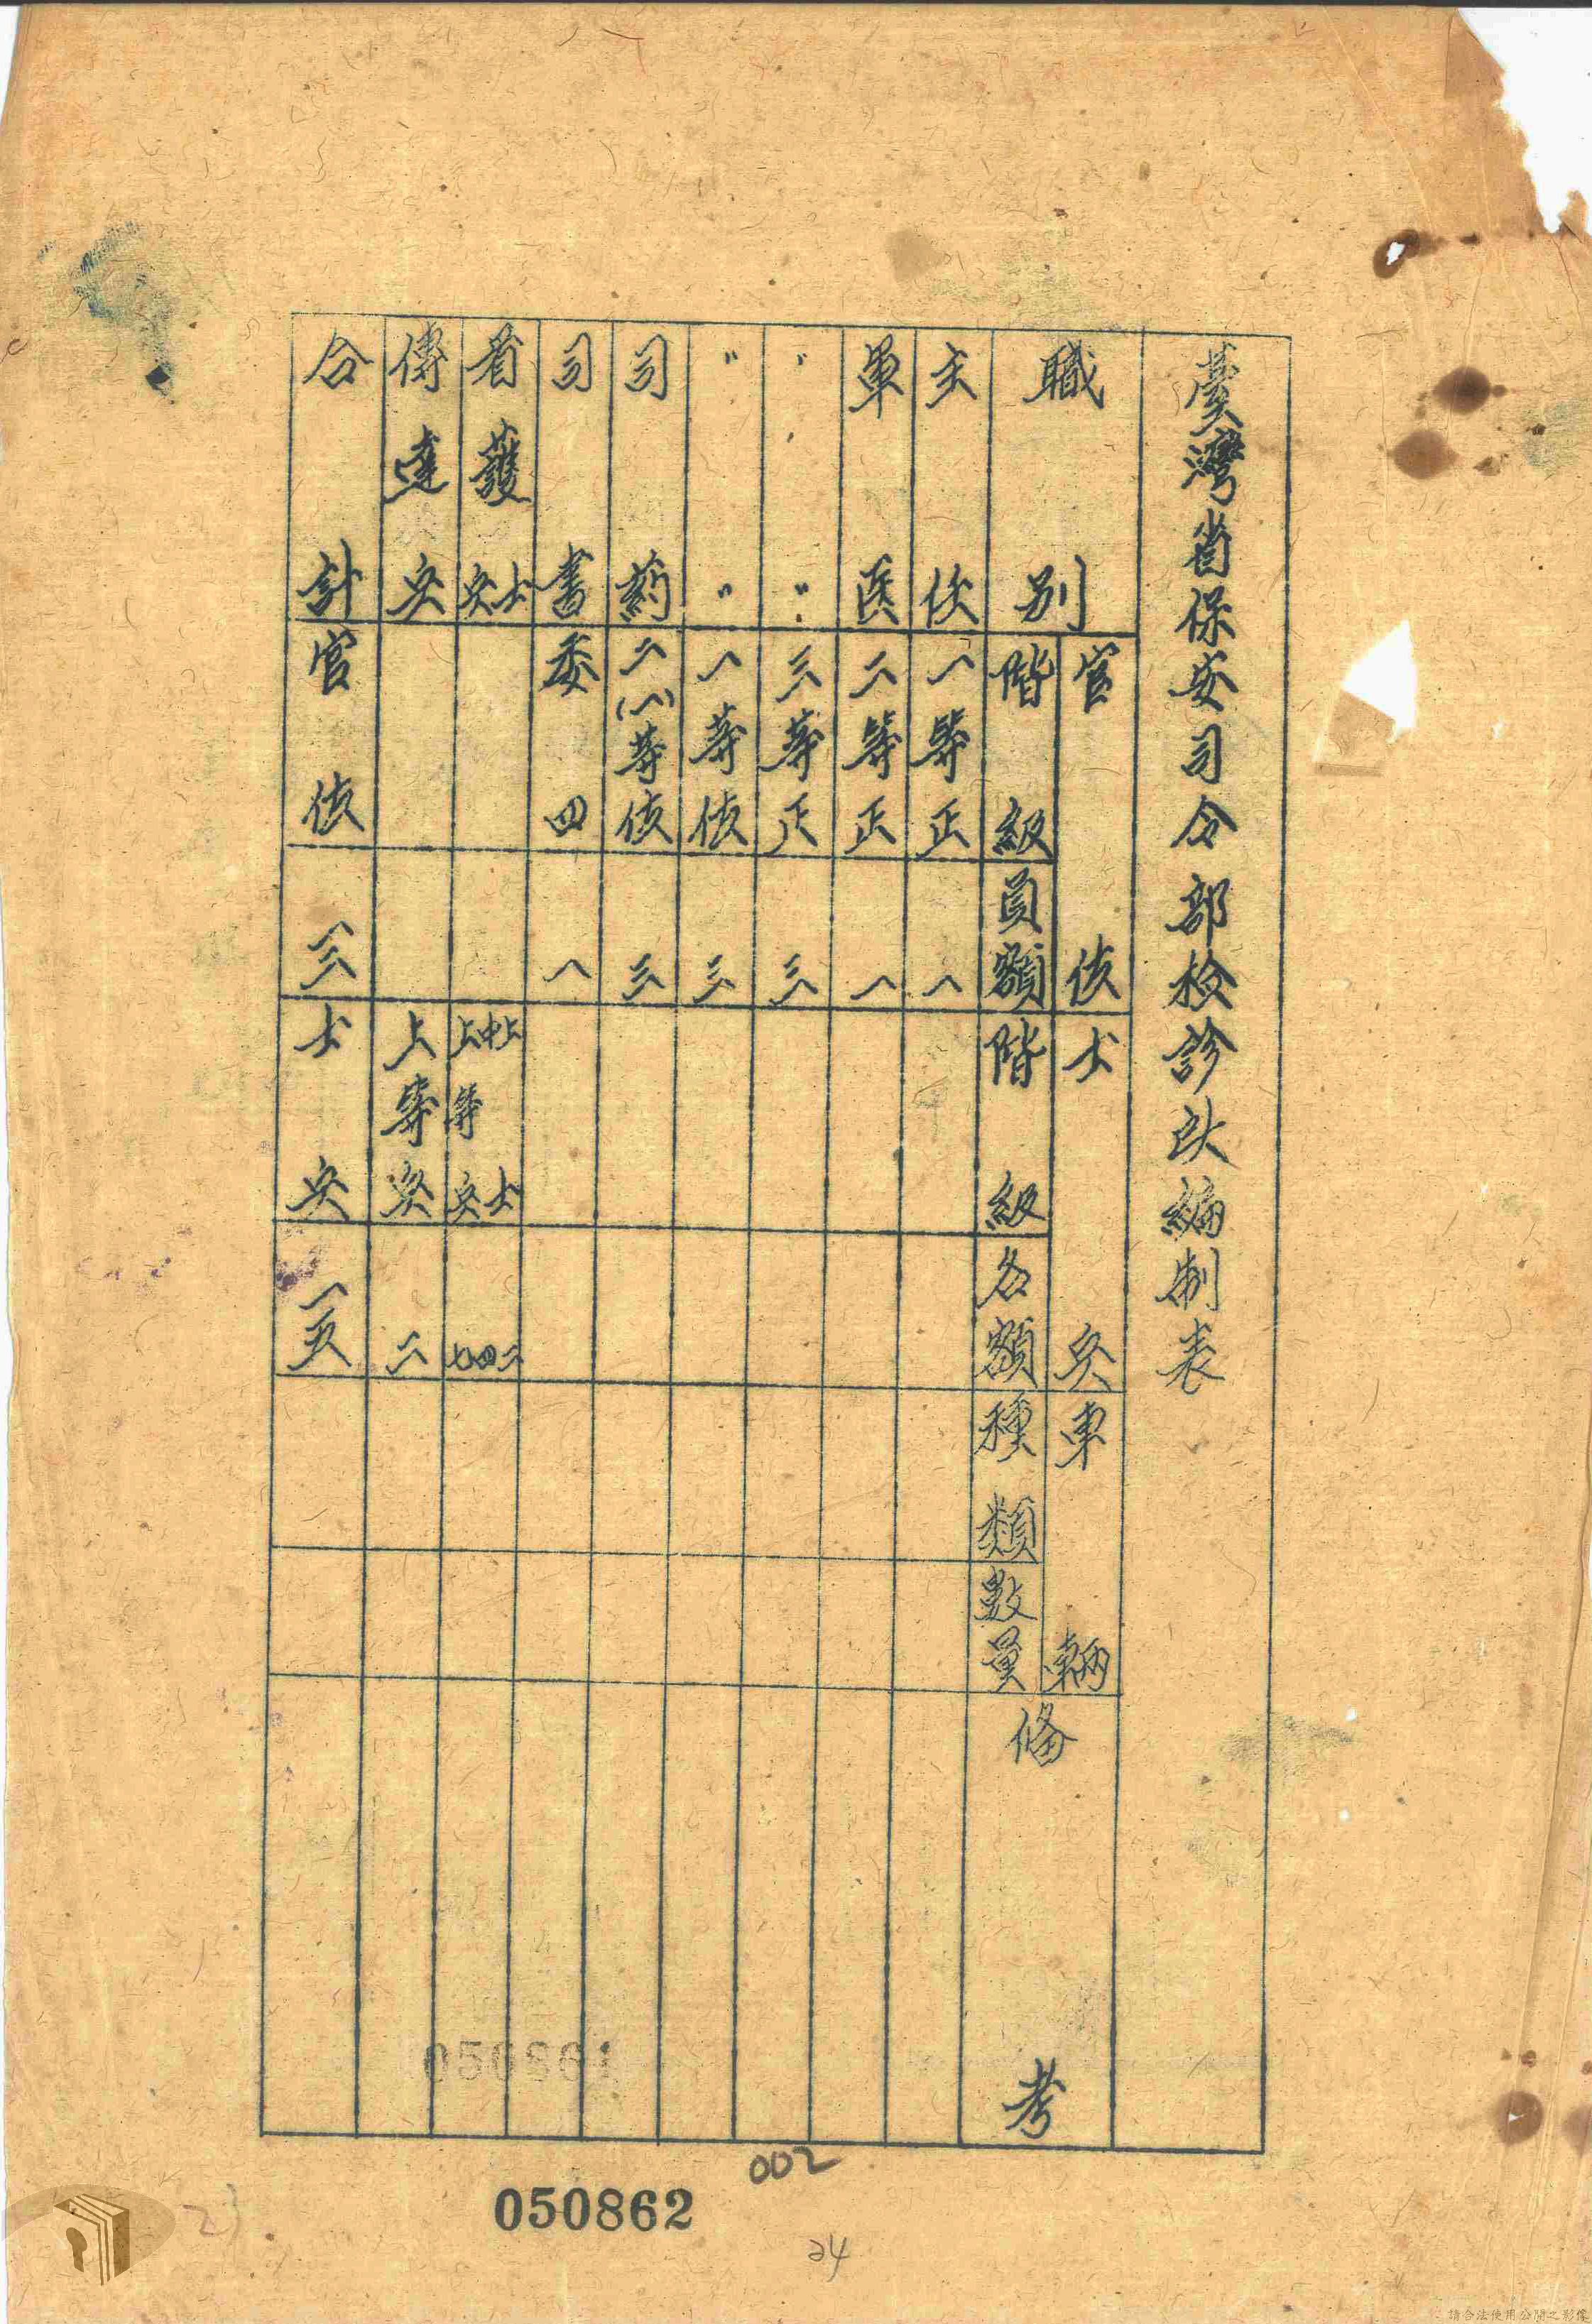 臺灣省保安司令部檢診所編制表
職別 官佐 士兵 車輛 俻考
階級 員額 階級 名額 種類 數量
主任 一等正 一
軍医 二等正 一
〃 〃 三等正 三
〃 〃 一等佐 三
司药 二(一)等佐 三
司書 委四 一
看護士兵 上中上等士兵 二四七
傳達兵 上等兵 二
合計 官佐 一三 士兵 一五
002
050862
24
050861
請合法使用公開之影像